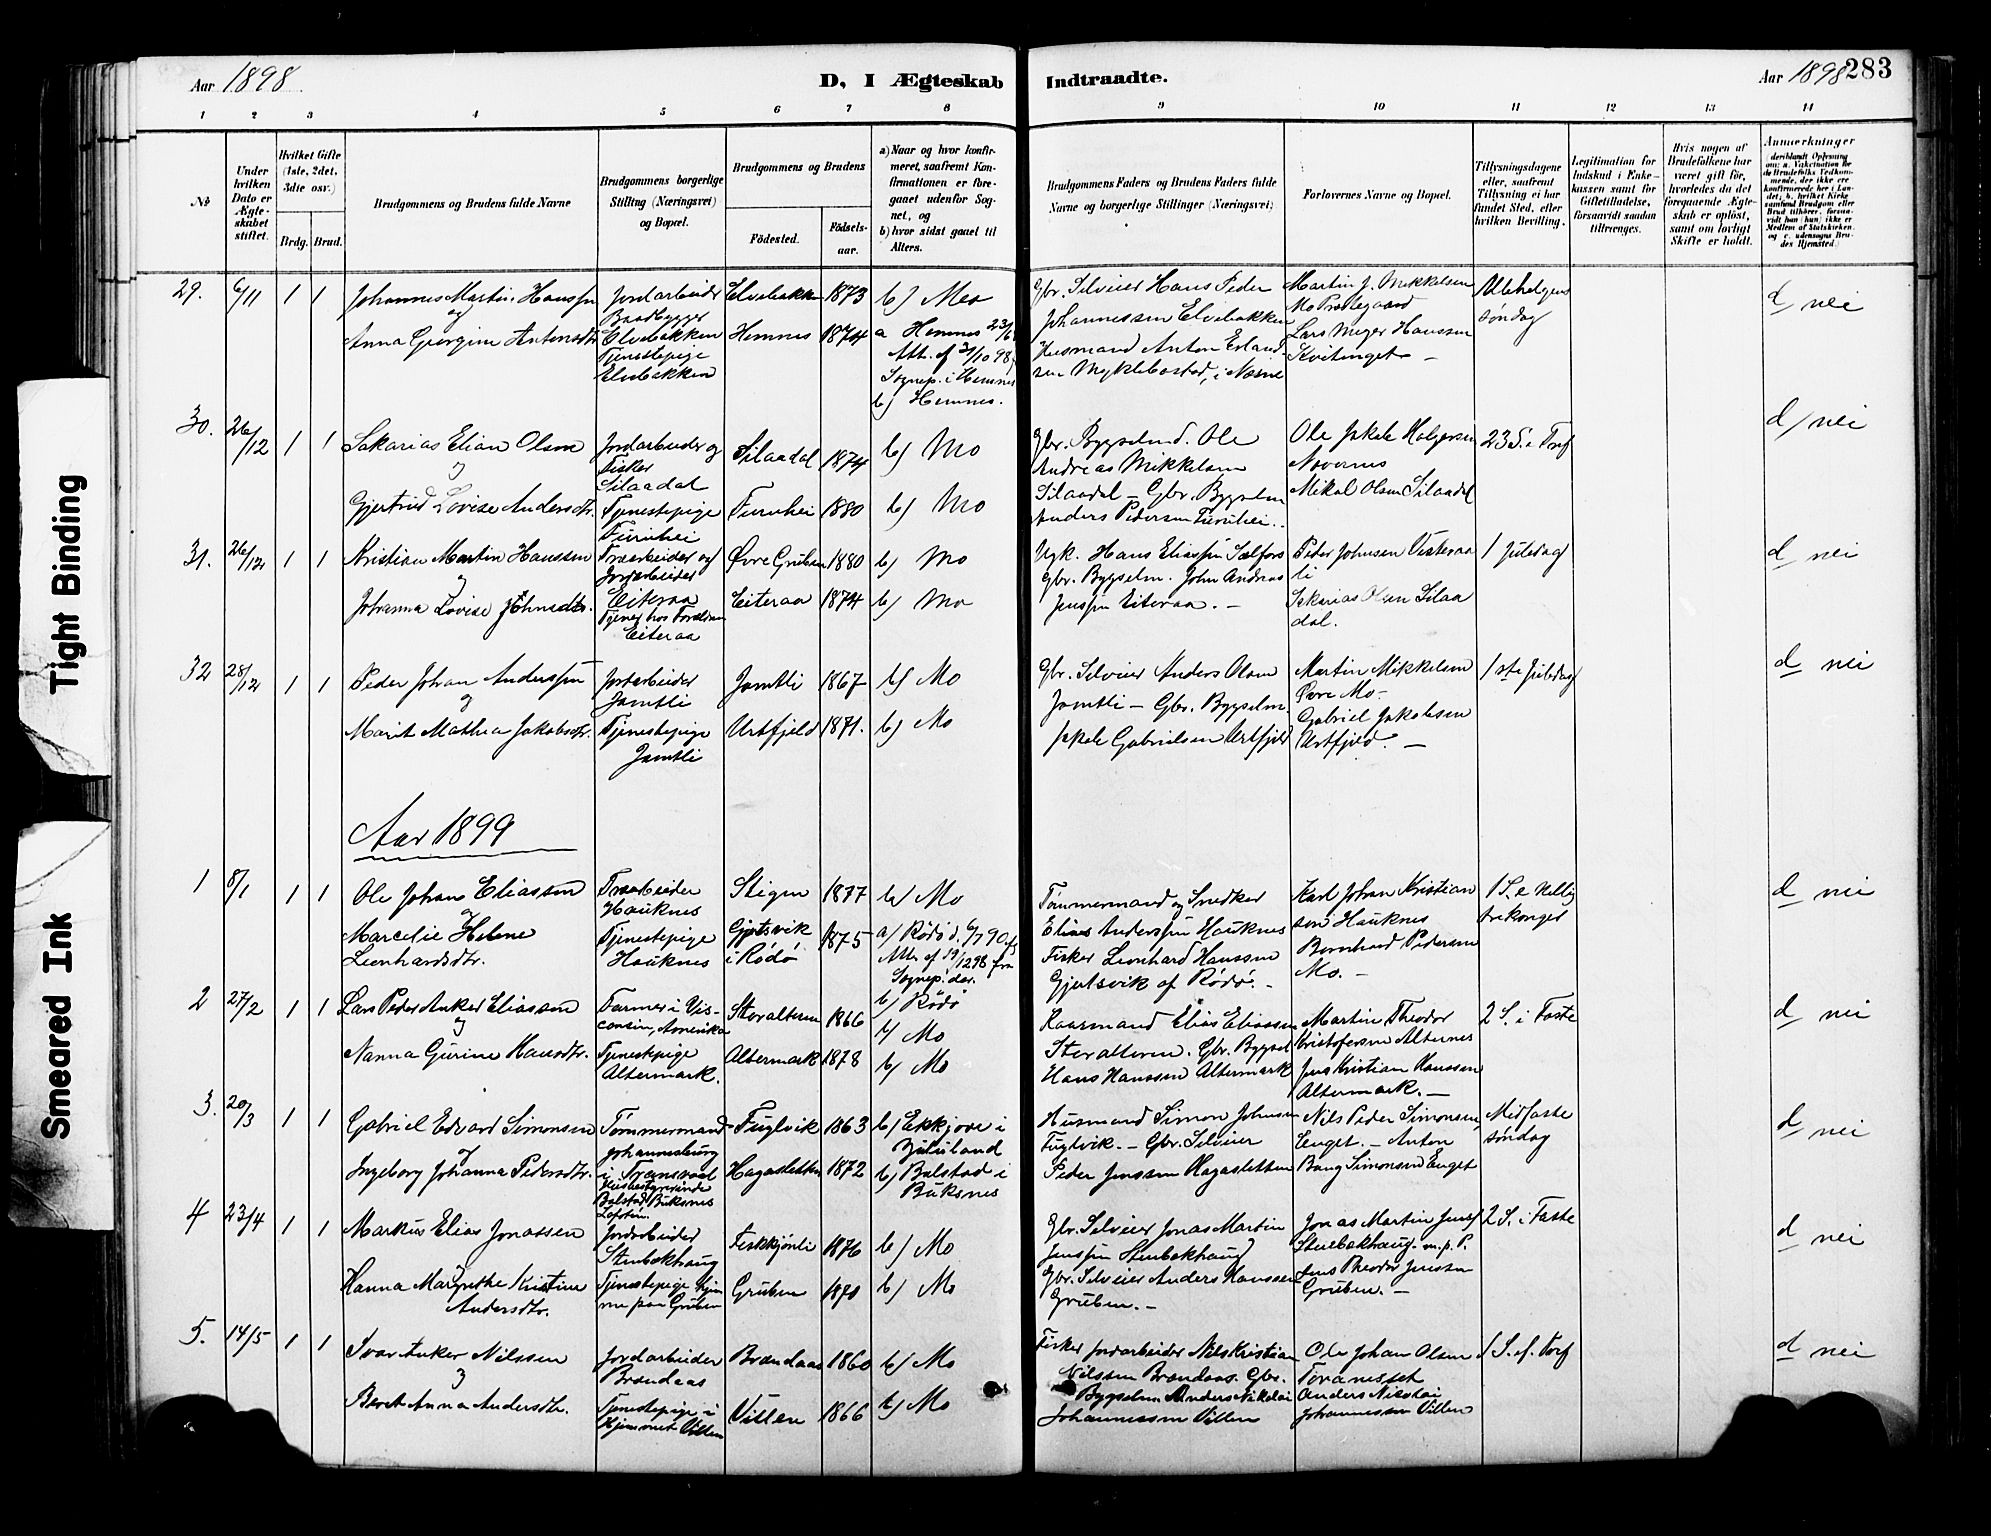 Aar 1898
D, I Ægteskab
Indtraadte.
Aar 1898
283
1 2 3 4 5 6 7 8 9 10 11 12 13 14
No
Under hvilken Dato er Ægteskabet stiftet.
Hvilket Gifte (1ste, 2det, 3die osv.)
Brdg. Brud.
Brudgommens og Brudens fulde Navne
Brudgommens borgerlige Stilling (Næringsvei) og Bopæl.
Brudgommens og Brudens
Fødested.
Fødselsaar.
a) Naar og hvor konfirmeret, saafremt Konfirmationen er foregaaet udenfor Sognet, og
b) hvor sidst gaaet til Alters.
Brudgommens Faders og Brudens Faders fulde Navne og borgerlige Stillinger (Næringsvei)
Forlovernes Navne og Bopæl.
Tillysningsdagene eller, saafremt Tillysning ei har fundet Sted, efter hvilken Bevilling.
Legitimation for Indskud i Enkekassen samt for Giftetilladelse, forsaavidt saadan tiltrænges.
Hvis nogen af Brudefolkene har været gift før, hvorledes da det foregaaende Ægteskab er opløst, samt om lovligt Skifte er holdt.
Anmærkninger
29. 6/11 1 1 Johannes Martin Hanssen
og
Anna Georgine Antonsdtr.
Jordarbeider
Baadbygger
Elvebakken
Tjenestepige
Elvebakken
Elvebakken 1873
Hemnes 1874
b) Mo
a Hemnes 23/6
Att. af 31/10 98
Sognep. i Hemnes
b) Hemnes.
Gbr. Selveier Hans Peder
Johannessen Elvebakken
Husmand Anton Erland-
sen Myklebostad, i Nesne
Martin J. Mikkelsen
Mo Prestegaard
Lars Meyer Hanssen
Kvitinget –
Allehelgens
søndag
d/ nei
30. 26/12 1 1 Sakarias Elian Olsen
og
Gjertrud Lovise Andersdtr.
Jordarbeider og
Fisker
Silaadal
Tjenestepige
Furuhei
Silaadal 1874
Furuhei 1880
b) Mo
b) Mo
Gbr. Bygselmd. Ole
Andreas Mikkelsen
Silaadal – Gbr. Bygselm
Anders Pedersen Furuhei.
Ole Jakob Holgersen
Nævernes
Mikal Olsen Silaadal
23 S. e Tref
d/ nei
31. 26/12 1 1 Kristian Martin Hanssen
og
Johanna Lovise Johnsdtr.
Træarbeider og
Jordarbeider
Eiteraa
Tjener hos Forældrene
Eiteraa
Øvre Gruben 1880
Eiteraa 1874
b) Mo
b) Mo
Ugk. Hans Eliassen Selfors
Gbr. Bygselm. John Andreas
Jenssen Eiteraa. –
Peder Johnsen Vesteraa
li
Sakarias Olsen Silaa
dal.
1 juledag
d nei
32 28/12 1 1 Peder Johan Anderssen
og
Marit Mathea Jakobsdtr.
Jordarbeider
Jamtli
Tjenestepige
Jamtli
Jamtli 1867
Urtfjeld 1871.
b) Mo
b) Mo
Gbr. Selveier Anders Olsen
Jamtli – Gbr. Bygselm.
Jakob Gabrielsen Urtfjeld
Martin Mikkelsen
Øvre Mo –
Gabriel Jakobsen
Urtfjeld. –
1ste Juledag
d nei
Aar 1899
1 8/1 1 1 Ole Johan Eliassen
og
Marcelie Helene
Leonhardsdtr.
Træarbeider
Hauknes
Tjenestepige
Hauknes
Stigen 1877
Gjertsvik
i Rødø 1875
b) Mo
a) Rødø d. 6/7 90
Att. af 19/12 98 fra
Sognep. der.
b) Rødø
Tømmermand og Snedker
Elias Anderssen Hauknes
Fisker Leonhard Hanssen
Gjertsvik af Rødø. –
Karl Johan Kristian
sen Hauknes
Bernhard Pedersen
Mo. –
1 S. e Hellig
trekonger
d nei
2 27/2 1 1 Lars Peder Anker Eliassen
og
Nanna Gurine Hansdtr.
Farmer i Vis-
consin, Amerika
Tjenestepige
Altermark.
Storalteren 1866
Altermark 1878
b) Mo
b) Mo
Kaarmand Elias Eliassen
Storalteren. Gbr. Bygsel
Hans Hanssen Altermark
Martin Theodor
Kristofersen Alternes
Jens Kristian Hanssen
Altermark. –
2 S. i Faste
d nei
3. 20/3 1 1 Gabriel Edvard Simonsen
og
Ingeborg Johanna Pedersdtr.
Tømmermand
Johannesburg
i Transvaal
Husbestyrerinde
Balstad, Buksnes
Lofoten.
Fuglvik 1863
Hagasletten 1872
b) Ekkjove i
Zululand
b) Balstad i
Buksnes
Husmand Simon Johnsen
Fuglvik. – Gbr. Selveier
Peder Jenssen Hagasletten
Nils Peder Simonsen
Enget. – Anton
Bang Simonsen Enget
Midfaste
søndag
d nei
4 23/4 1 1 Markus Elias Jonassen
og
Hanna Margrethe Kristine
Andersdtr.
Jordarbeider
Stenbækhaug
Tjenestepige Hjem
me paa Gruben
Fiskkjønli 1876
Gruben 1870
b) Mo
b) Mo
Gbr. Selveier Jonas Martin
Jenssen Stenbækhaug
Gbr. Selveier Anders Hanssen
Gruben. –
Jonas Martin Jenss
Stenbækhaug. m. p. P.
Jens Theodor Jenssen
Gruben. –
2 S. i Faste
d nei
5. 14/5 1 1 Ivar Anker Nilssen
og
Beret Anna Andersdtr.
Jordarbeider
Brændaas
Tjenestepige i
Hjemmet Villen
Brændaas 1860
Villen 1866
b) Mo
b) Mo
Fisker Jordarbeider Nils Kristian
Nilssen Brændaas. Gbr.
Bygselm Anders Nikolai
Johannessen Villen
Ole Johan Olsen
Toranesset
Anders Nicolai
Johannessen Villen
1 S. f. Tref
d nei
Tight Binding
Smeared Ink